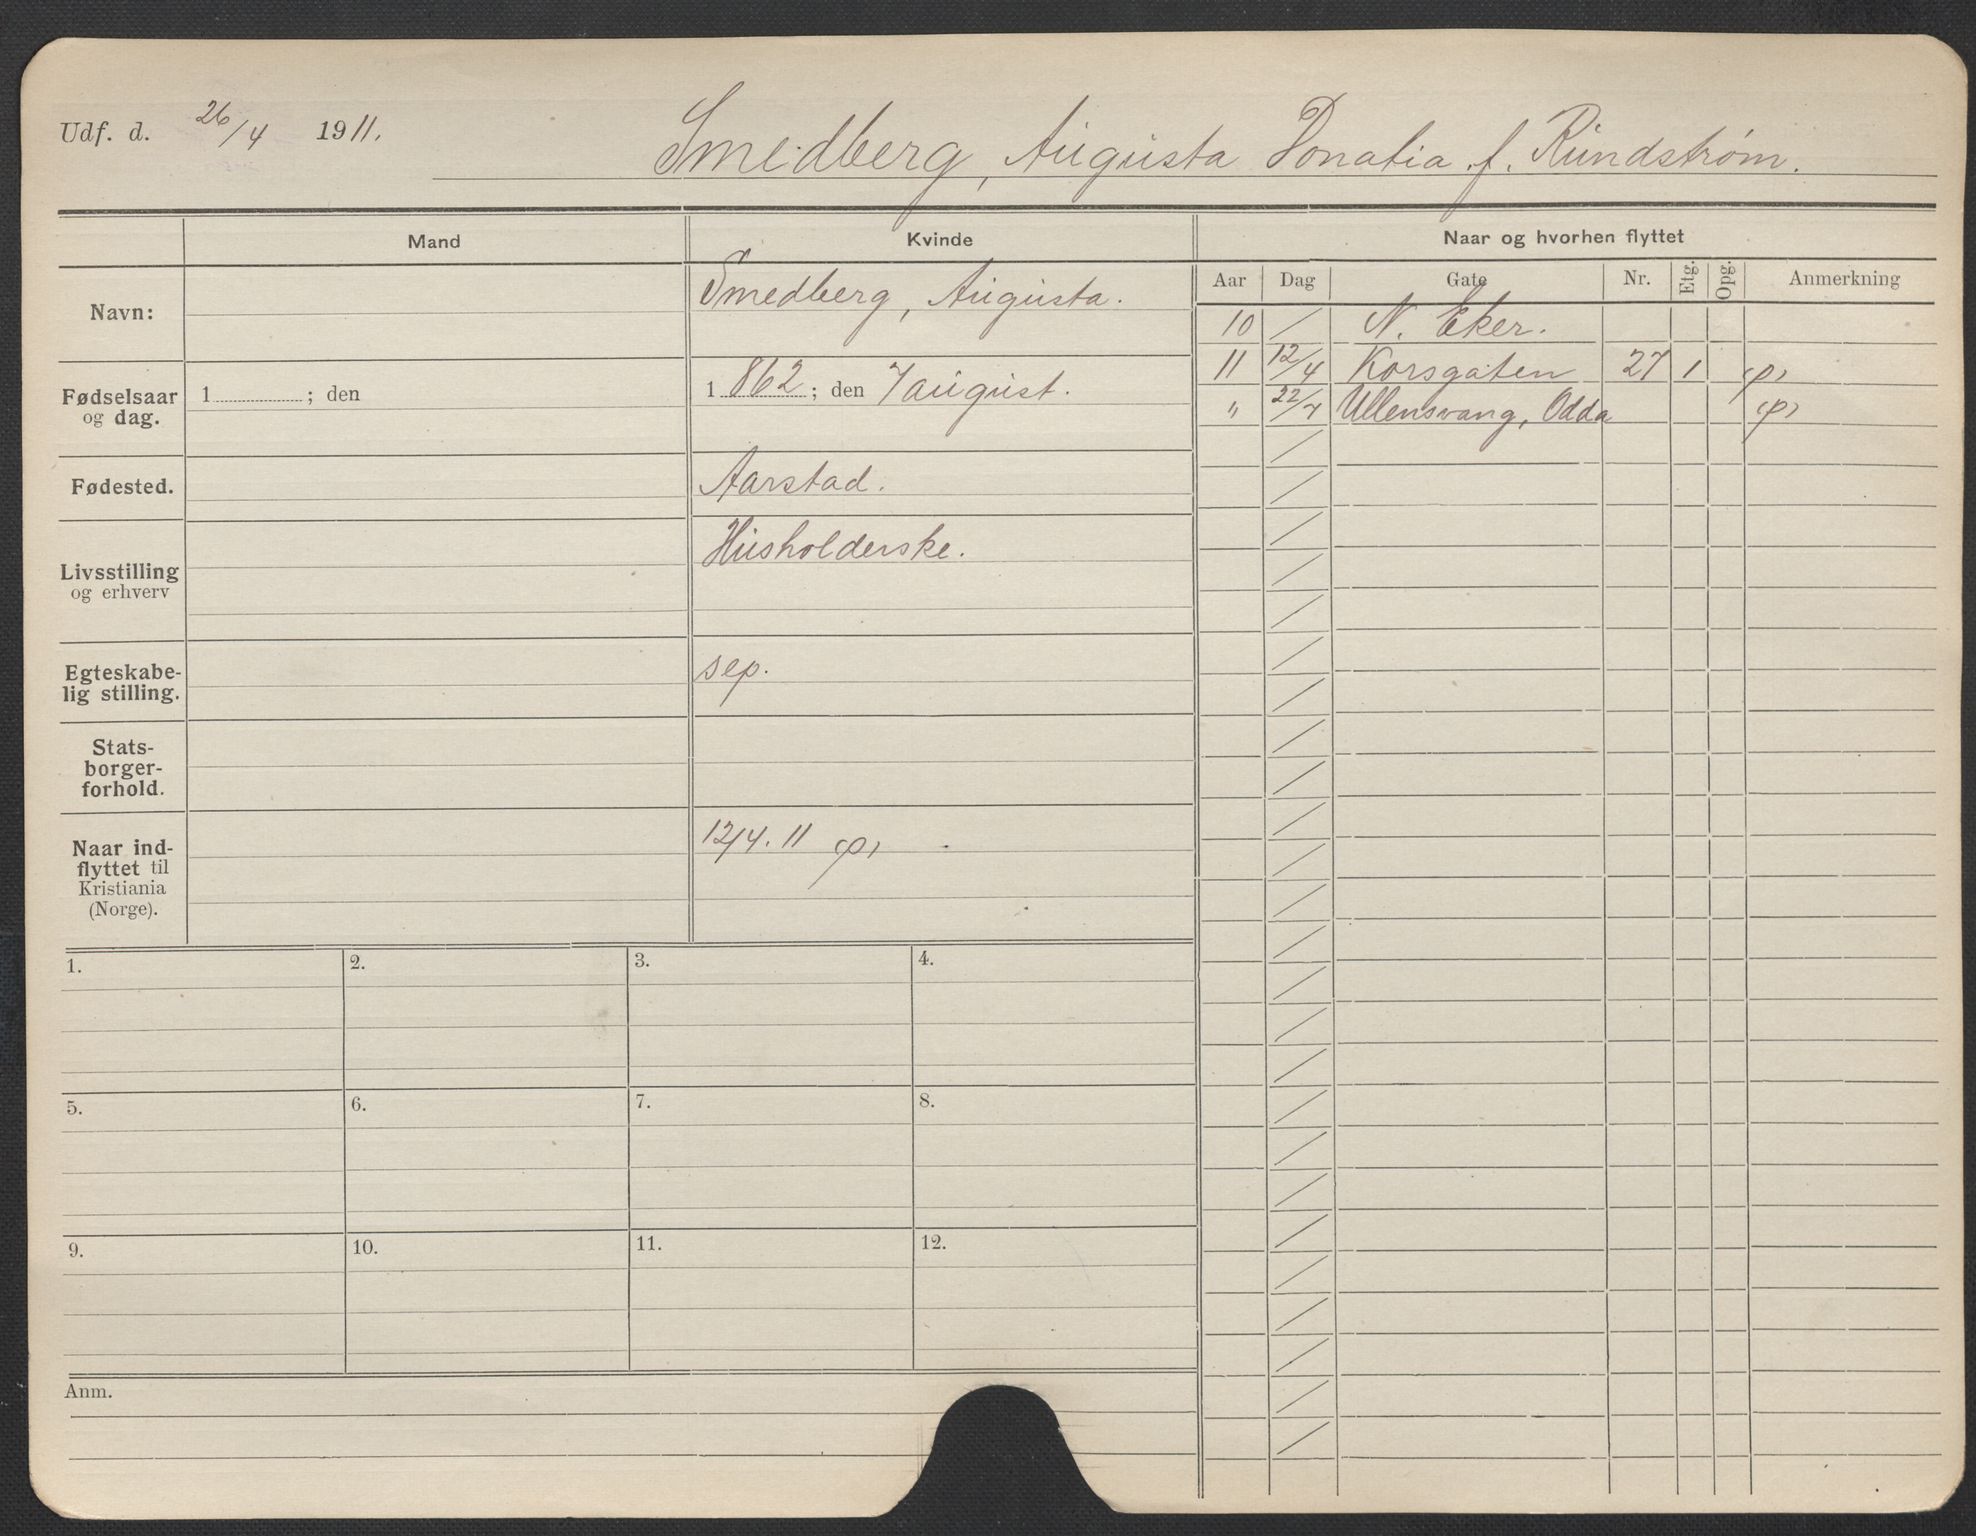 Udf. d. 26/4 1911.
Smedberg, Augusta Donatia f. Rundstrøm.
Mand Kvinde Naar og hvorhen flyttet
Aar Dag Gate Nr. Etg. Opg. Anmerkning
Navn: Smedberg, Augusta.
10 / N. Eker.
11 12/4 Korsgaten 27 1
" 22/7 Ullensvang, Odda
Fødselsaar
og dag.
1 ; den 1 862 ; den 7 august.
Fødested. Aarstad.
Livsstilling
og erhverv
Husholderske.
Egteskabe-
lig stilling.
sep.
Stats-
borger-
forhold.
Naar ind-
flyttet til
Kristiania
(Norge).
12/4. 11
1. 2. 3. 4.
5. 6. 7. 8.
9. 10. 11. 12.
Anm.